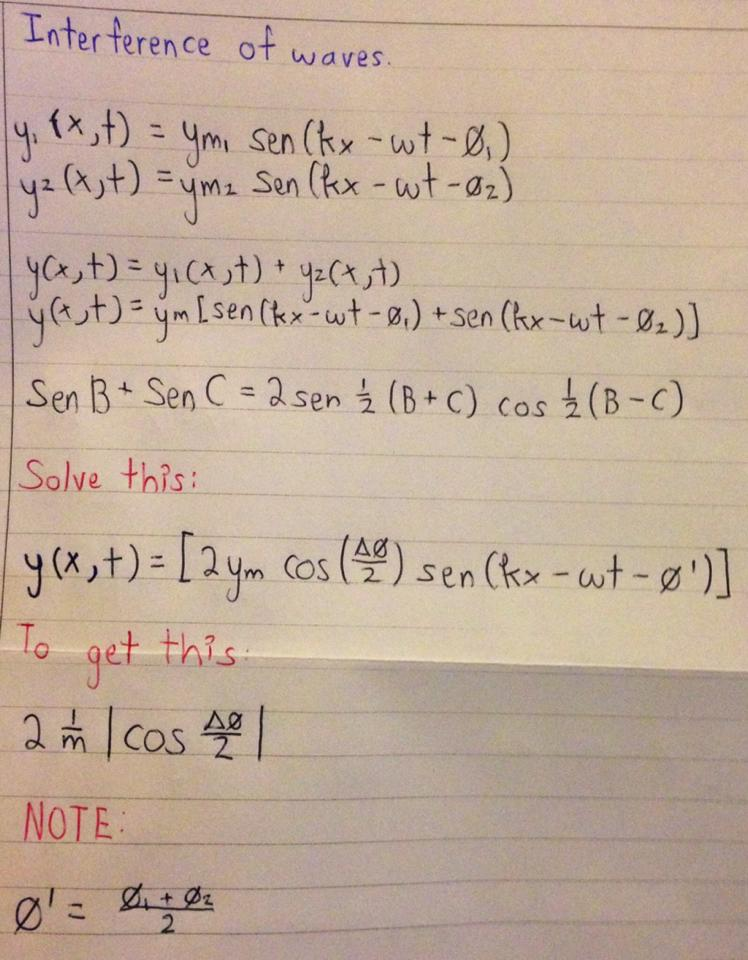 Interference of waves.
y₁(x,t) = ym₁ sen(kx - wt - Ø₁)
y₂(x,t) = ym₂ sen(kx - wt - ø₂)
y(x,t) = y₁(x,t) + y₂(x,t)
y(x,t) = ym [sen(kx - wt - Ø₁) + sen(kx - wt - Ø₂)]
Sen B + Sen C = 2 sen ½ (B + C) cos ½ (B - C)
Solve this:
y(x,t) = [2ym cos(ΔØ/2) sen(kx - wt - ø')]
To get this:
2 1/m |cos ΔØ/2|
NOTE:
Ø' = Ø₁ + Ø₂ / 2